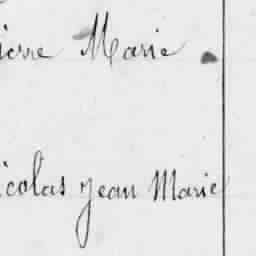 ierre Marie
icolas Jean Marie